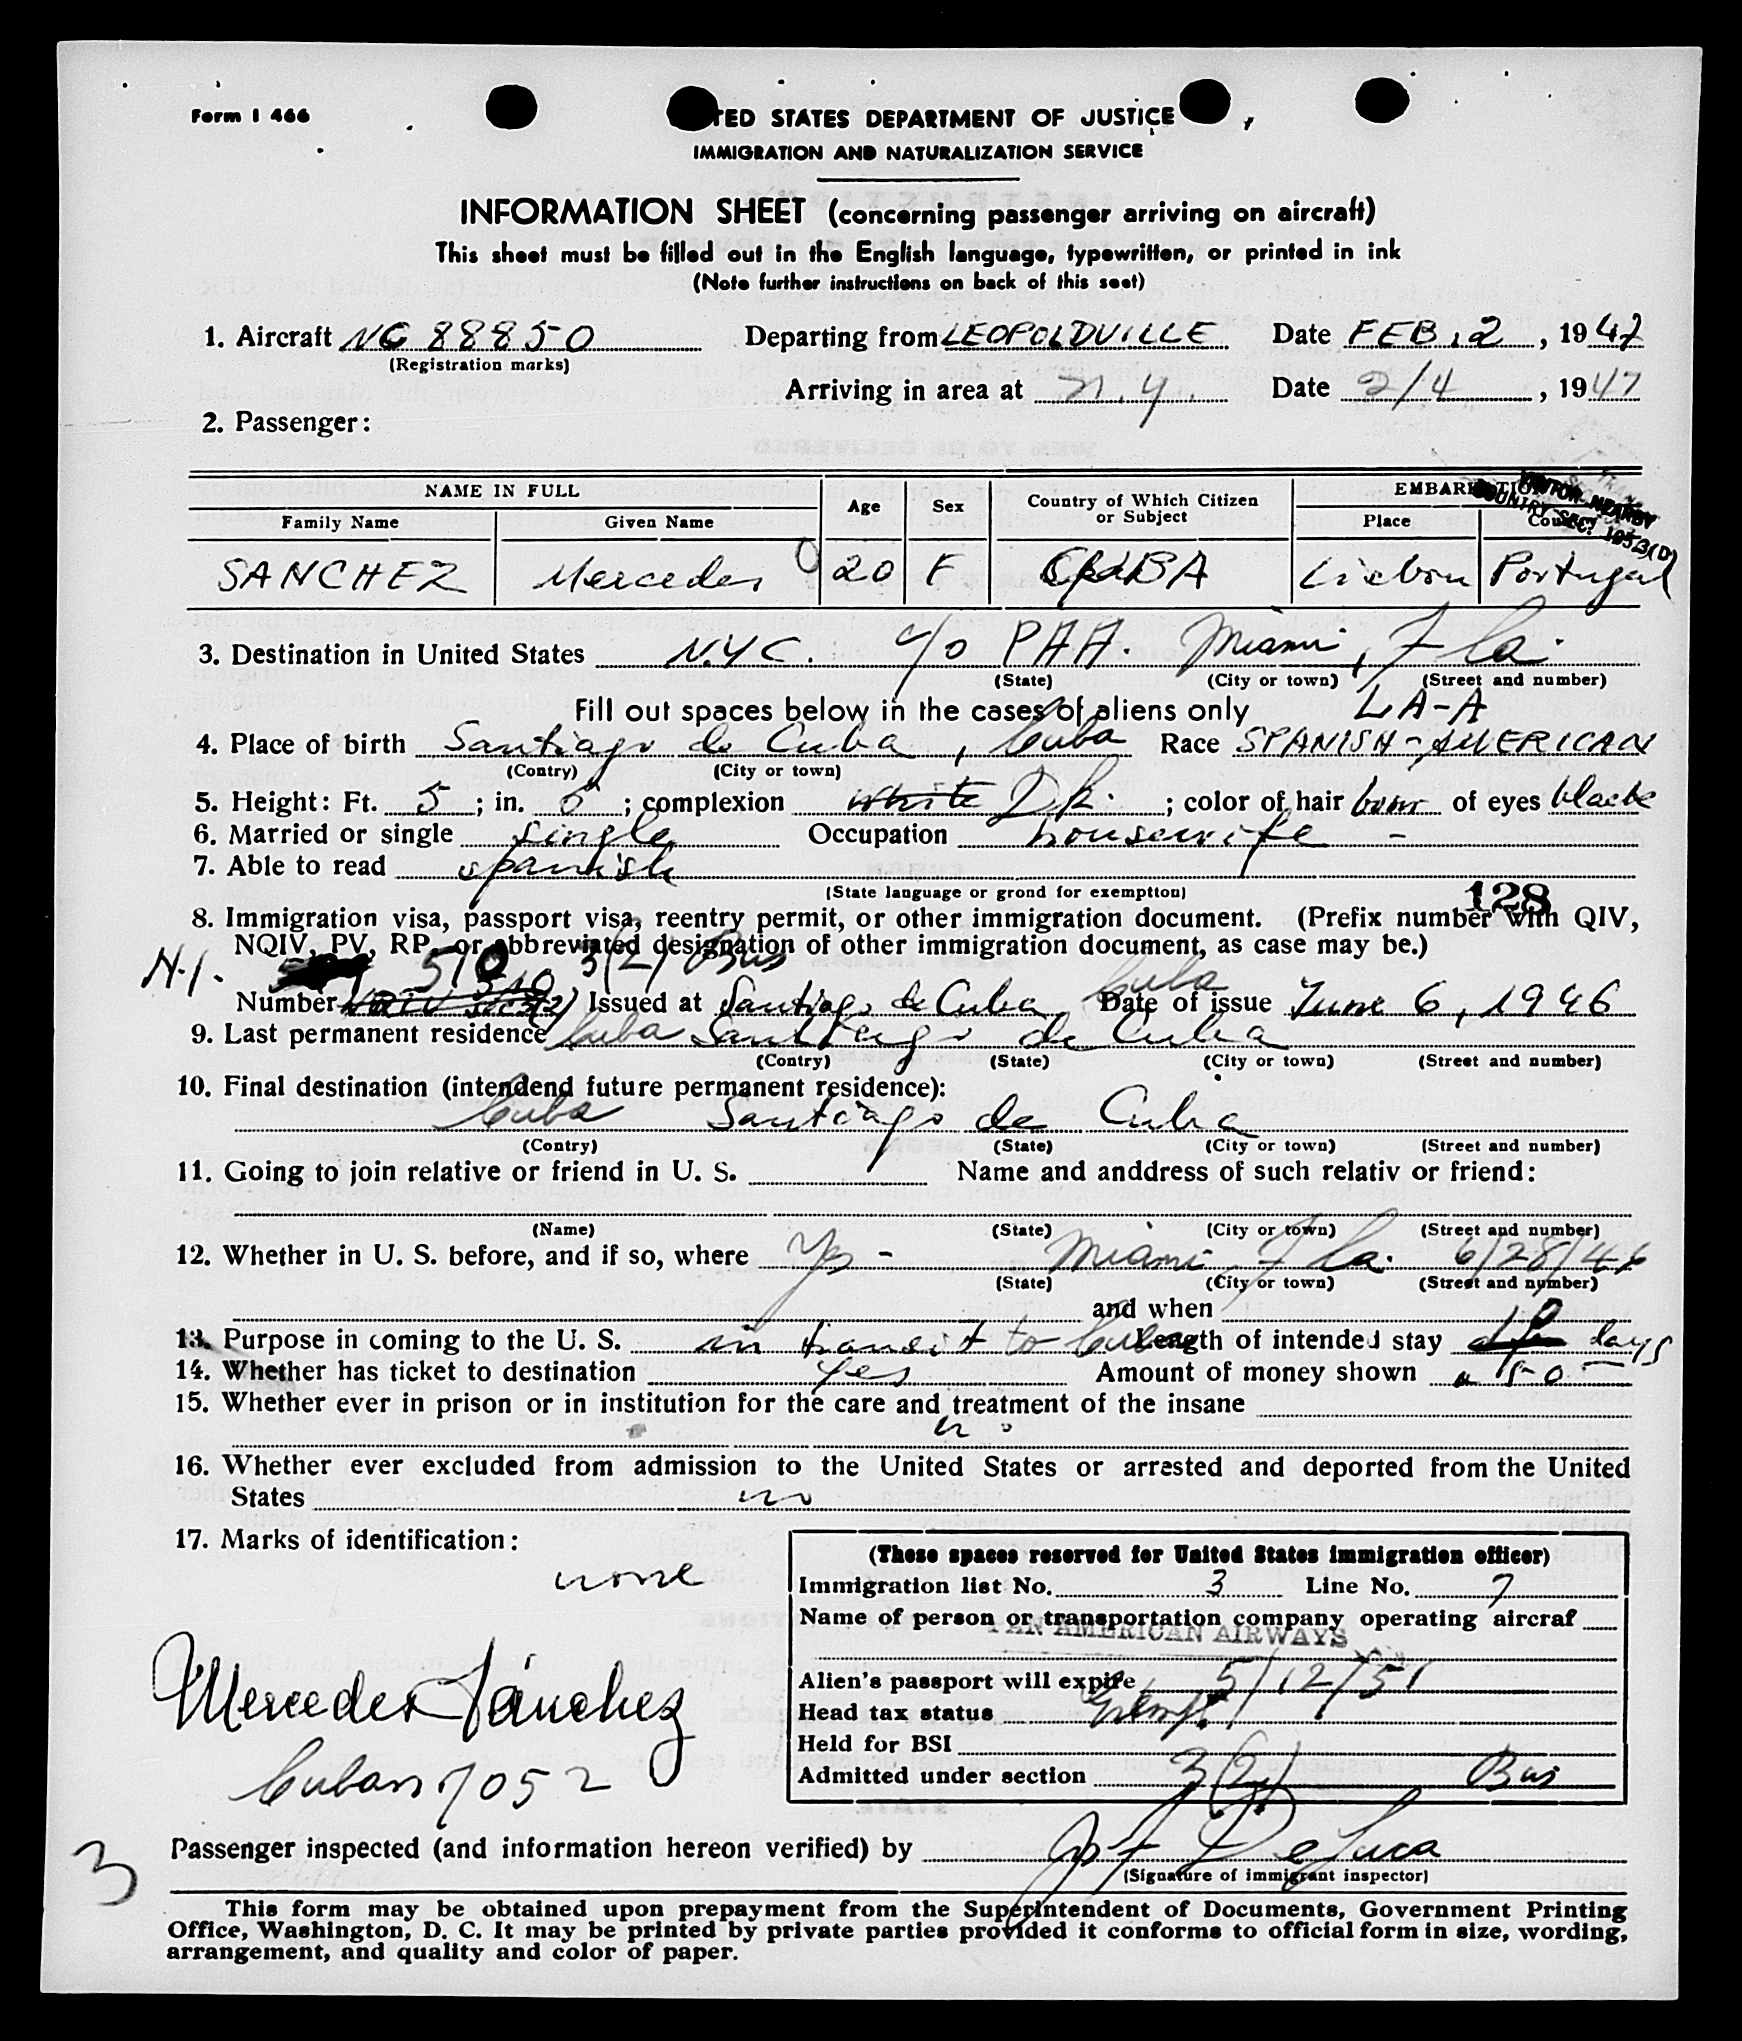 Form I 466
TED STATES DEPARTMENT OF JUSTICE
IMMIGRATION AND NATURALIZATION SERVICE
INFORMATION SHEET (concerning passenger arriving on aircraft)
This sheet must be filled out in the English language, typewritten, or printed in ink
(Note further instructions on back of this seet)
1. Aircraft NC 88850 Departing from LEOPOLDVILLE Date FEB. 2, 1947
(Registration marks)
Arriving in area at N.Y. Date 2/4, 1947
2. Passenger:
NAME IN FULL Age Sex Country of Which Citizen or Subject EMBARKATION
Family Name Given Name Place
VISITOR NEARBY
COUNTRY SEC.
SANCHEZ Mercedes 20 F CUBA Lisbon Portugal
3. Destination in United States N.Y.C. c/o PAA. Miami, Fla.
(State) (City or town) (Street and number)
Fill out spaces below in the cases of aliens only LA-A
4. Place of birth Santiago de Cuba, Cuba Race SPANISH-AMERICAN
(Contry) (City or town)
5. Height: Ft. 5; in. 5; complexion white Dk.; color of hair of eyes black
6. Married or single single Occupation housewife -
7. Able to read spanish
(State language or grond for exemption)
128
8. Immigration visa, passport visa, reentry permit, or other immigration document. (Prefix number with QIV,
NQIV, PV, RP, or abbreviated designation of other immigration document, as case may be.)
N.I. 510 3(2) Bus
Number Issued at Santiago de Cuba Cuba Date of issue June 6, 1946
9. Last permanent residence Cuba Santiago de Cuba
(Contry) (State) (City or town) (Street and number)
10. Final destination (intendend future permanent residence):
Cuba Santiago de Cuba
(Contry) (State) (City or town) (Street and number)
11. Going to join relative or friend in U. S. Name and anddress of such relativ or friend:
(Name) (State) (City or town) (Street and number)
12. Whether in U. S. before, and if so, where Yes - Miami Fla. 6/28/46
(State) (City or town) (Street and number)
and when
13. Purpose in coming to the U. S. in transit to Cuba Length of intended stay 10 days
14. Whether has ticket to destination yes Amount of money shown 50 -
15. Whether ever in prison or in institution for the care and treatment of the insane
no
16. Whether ever excluded from admission to the United States or arrested and deported from the United
States no
17. Marks of identification:
none
(These spaces reserved for United States immigration officer)
Immigration list No. 3 Line No. 7
Name of person or transportation company operating aircraf
PAN AMERICAN AIRWAYS
Alien's passport will expire 5/12/51
Head tax status Exempt
Held for BSI
Admitted under section 3(2) Bus
Mercedes Sánchez
Cuban 7052
3
Passenger inspected (and information hereon verified) by De Luca
(Signature of immigrant inspector)
This form may be obtained upon prepayment from the Superintendent of Documents, Government Printing
Office, Washington, D. C. It may be printed by private parties provided it conforms to official form in size, wording,
arrangement, and quality and color of paper.